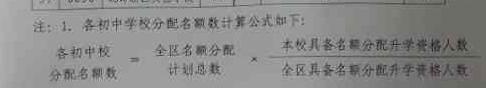 注：1. 各初中学校分配名额数计算公式如下：
各初中校 全区名额分配 本校具备名额分配升学资格人数
分配名额数 = 计划总数 × 全区具备名额分配升学资格人数